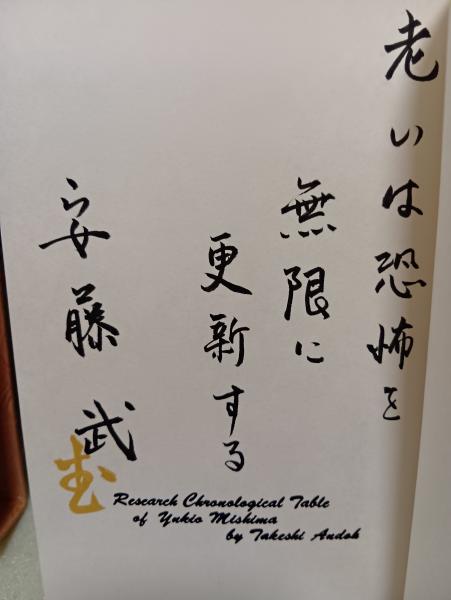 老いは恐怖を
無限に
更新する
安藤武
Research Chronological Table
of Yukio Mishima
by Takeshi Andoh